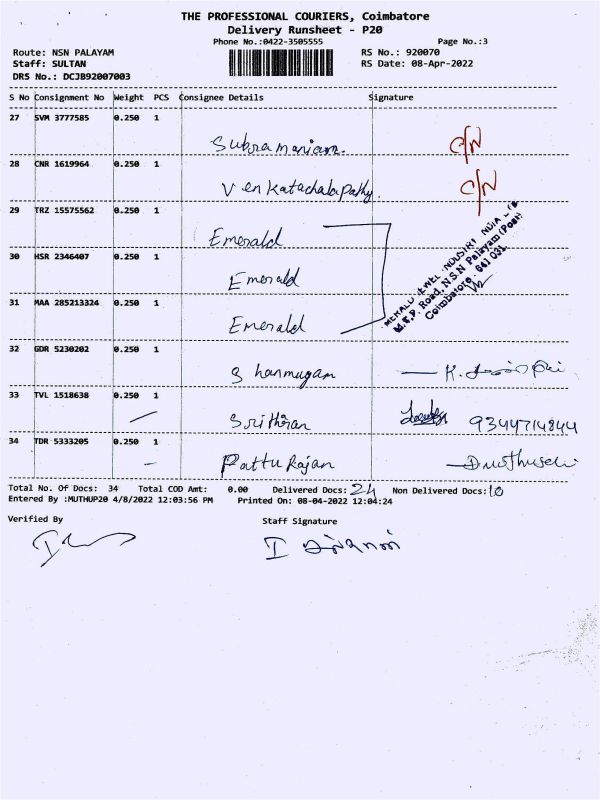 THE PROFESSIONAL COURIERS, Coimbatore
Delivery Runsheet - P20
Phone No.:0422-3505555 Page No.:3
Route: NSN PALAYAM RS No.: 920070
Staff: SULTAN RS Date: 08-Apr-2022
DRS No.: DCJB92007003
S No Consignment No Weight PCS Consignee Details Signature
27 SVM 3777585 0.250 1
Subramaniam. C/N
28 CNR 1619964 0.250 1
Venkatachalapathy. C/N
29 TRZ 15575562 0.250 1
Emerald
30 HSR 2346407 0.250 1
Emerald
31 MAA 285213324 0.250 1
Emerald
JEWEL INDUSTRY INDIA
M.T.P. Road, N.S.N Palayam (Post)
Coimbatore - 641 031.
32 GDR 5230202 0.250 1
Shanmugam K.
33 TVL 1518638 0.250 1
Sritharan 9344714844
34 TDR 5333205 0.250 1
Pattu Rajan
Total No. Of Docs: 34 Total COD Amt: 0.00 Delivered Docs: 24 Non Delivered Docs: 10
Entered By :MUTHUP20 4/8/2022 12:03:56 PM Printed On: 08-04-2022 12:04:24
Verified By Staff Signature